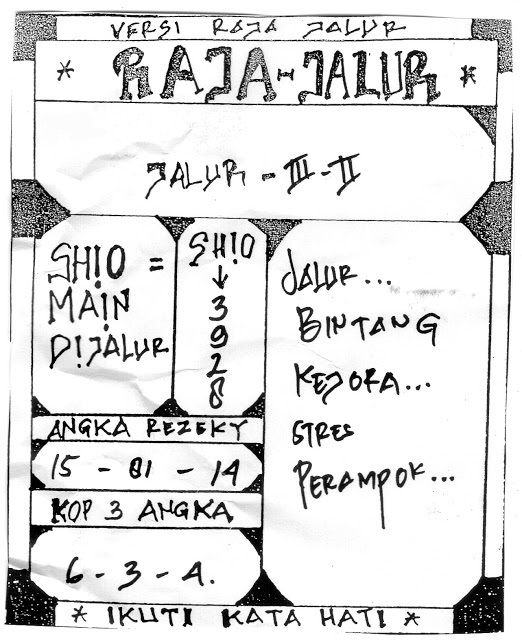 VERSI RAJA JALUR
* RAJA-JALUR *
JALUR - III - II
SH!O =
MAIN
D!JALUR
SH!O
↓
3
9
2
8
ANGKA REZEKY
15 - 01 - 14
KOP 3 ANGKA
6 - 3 - 4.
JALUR...
BINTANG
KEJORA...
STRES
PERAMPOK...
* IKUTI KATA HATI *